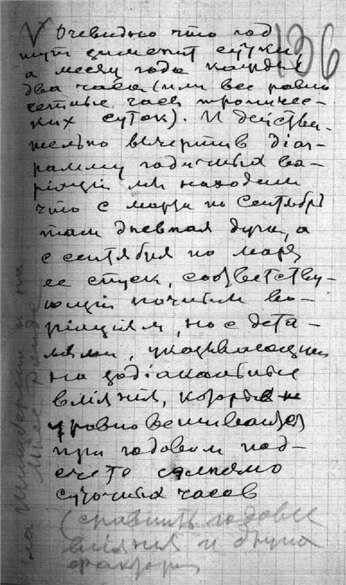 V Очевидно что год
136
тут заменит сутки
а месяц года каждые
два часа (или все равно
четные часы тропичес-
ких суток). И действи-
тельно вычертив діаг-
рамму годичных ва-
ріацій мы находим
что с марта по Сентябрь
там дневная дуга, а
с сентября по март
ее спуск, соответству-
ющий ночным ва-
ріаціям, но с дета-
лями, указывающими
на зодіакальные
вліянія, которые не
уравновешиваются
при годовом под-
счете
суточных часов
(сравнить годовые
вліянія и
факторы